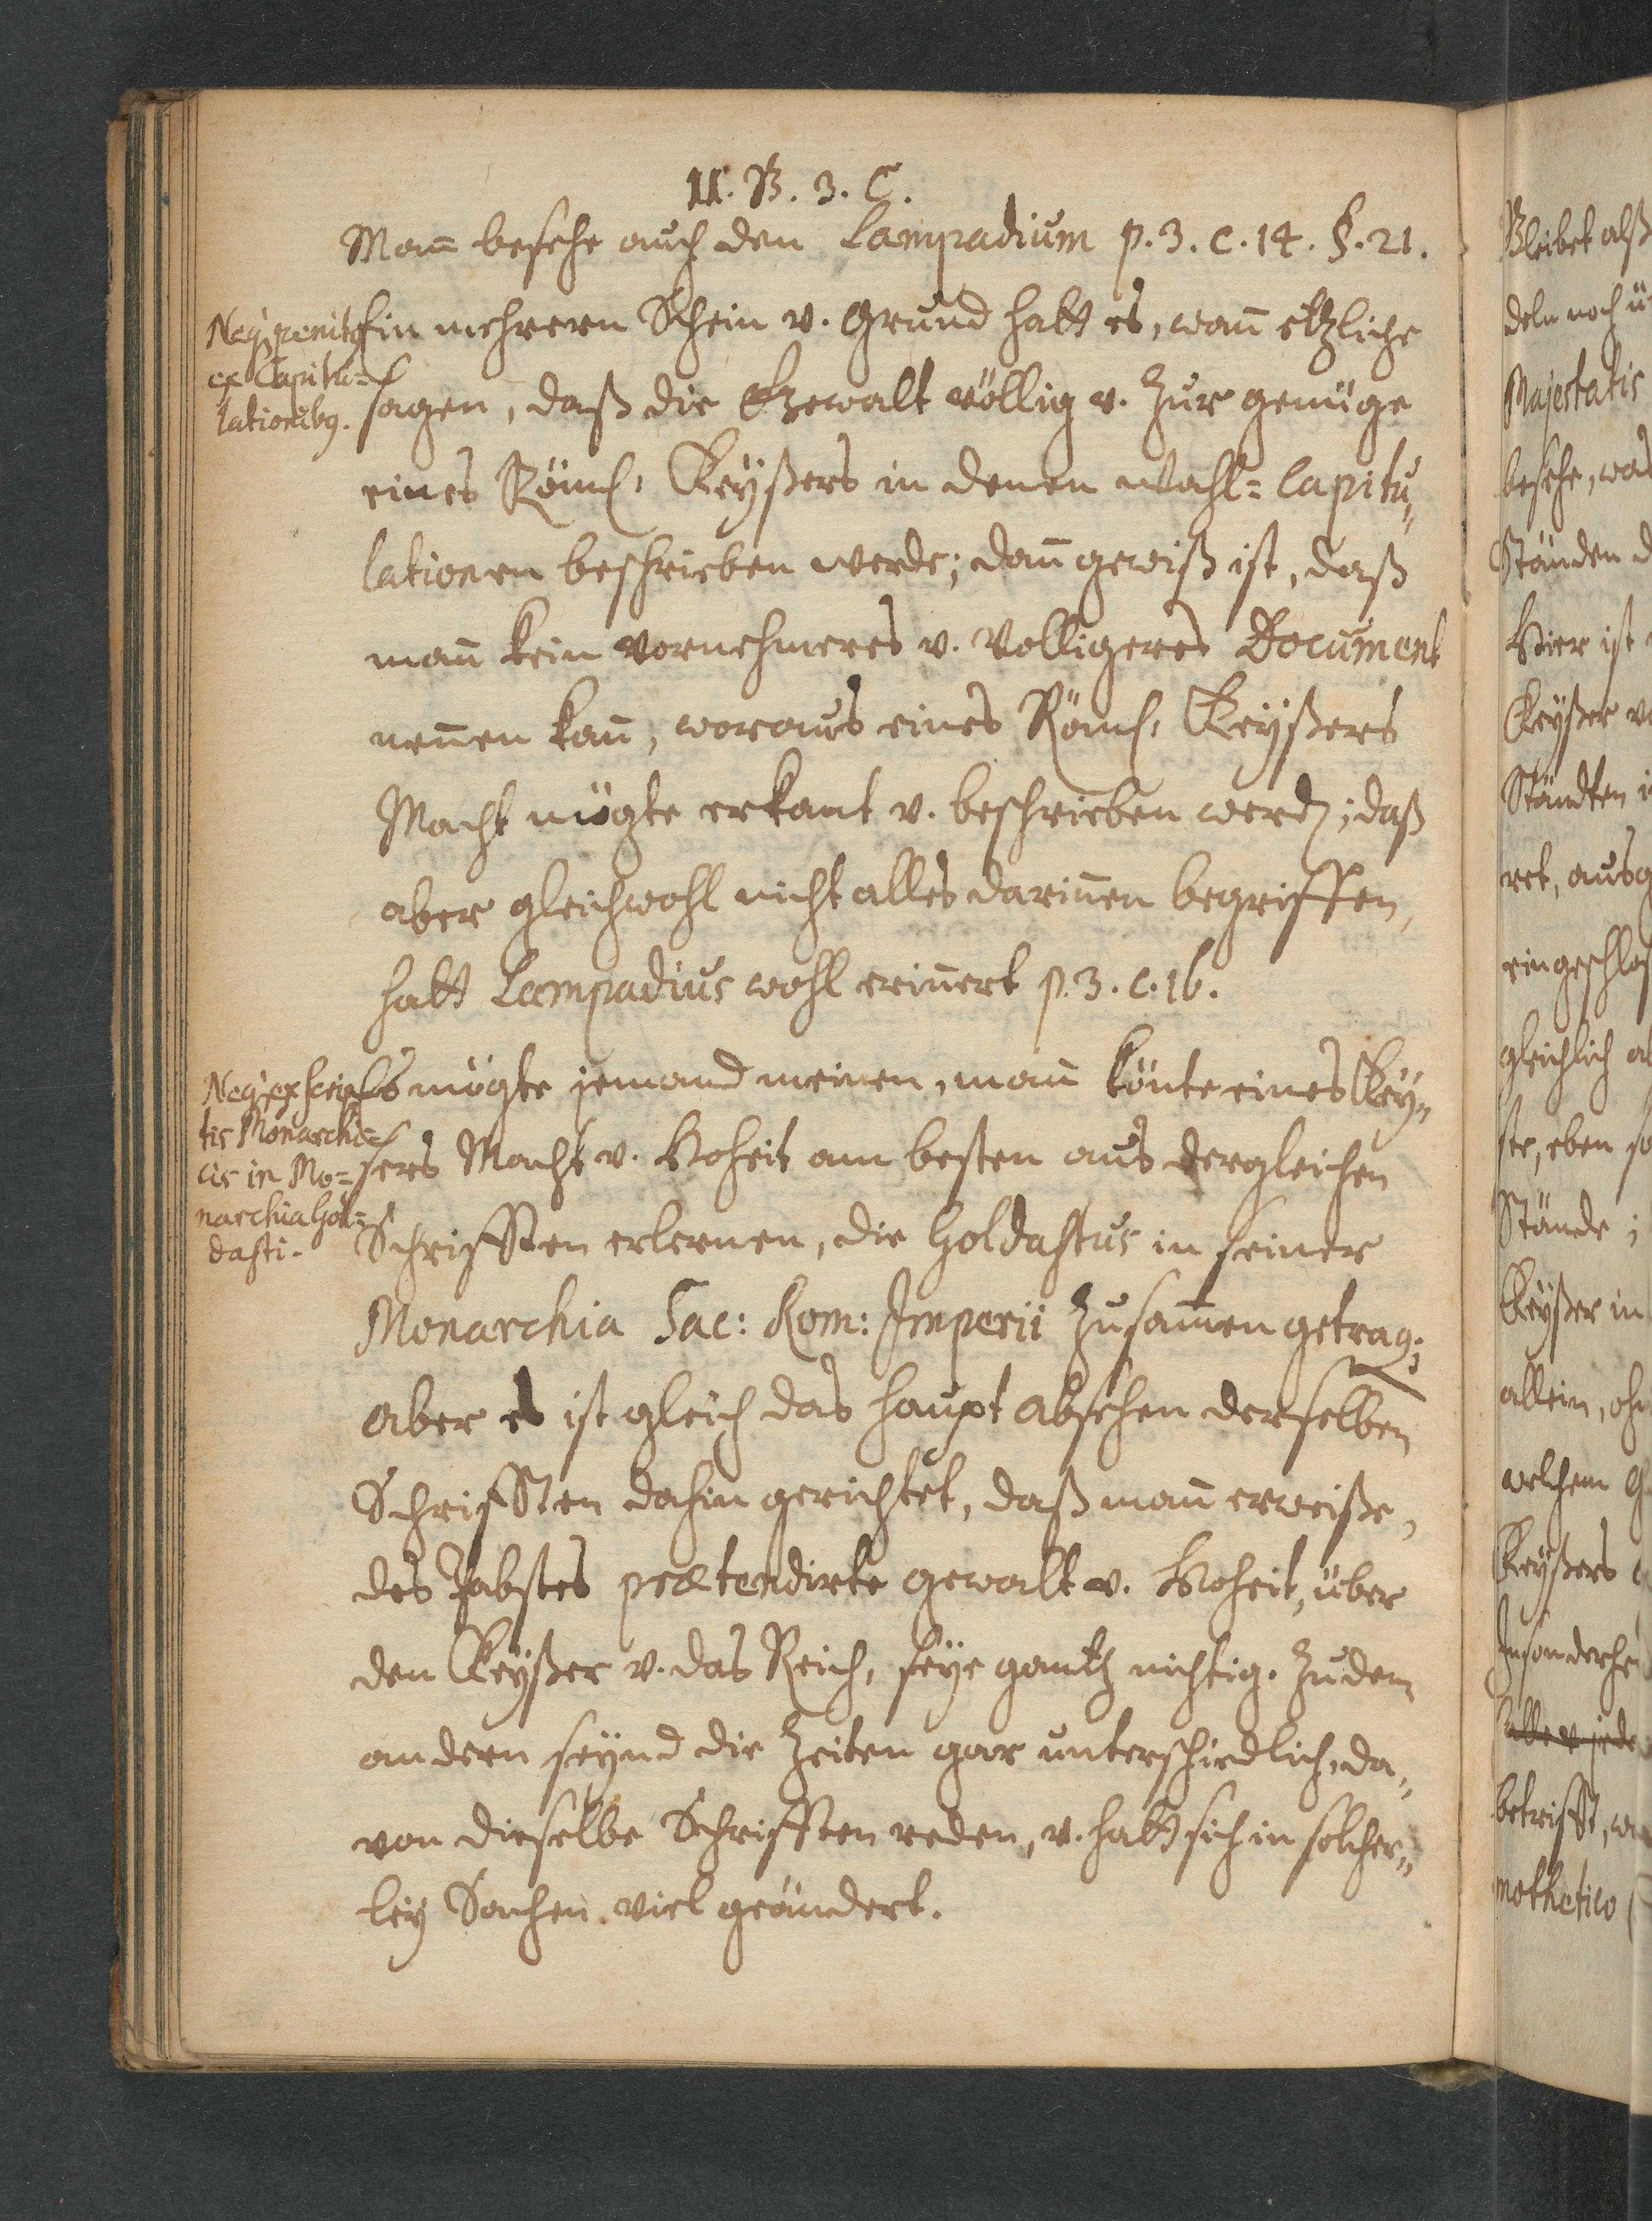 II. B. 3. C.
Mañ besehe auch den Lampadium p. 3. c. 14. §. 21.
Neq; penitus
ex Capitu=
lationibus.
Ein mehrern Schein v. Grund hatt es, wañ etzliche
sagen, daß die Gewalt völlig v. zur genüge
eines Röm. Keyßers in denen Wahl=Capitu„
lationen beschrieben werde; dañ gewiß ist, daß
mañ kein vornehmeres v. völligeres Document
neñen kañ, woraus eines Röm. Keyßers
Macht mögte erkant v. beschrieben werd; daß
aber gleichwohl nicht alles dariñen begriffen,
hatt Lampadius wohl eriñert p. 3. c. 16.
Neq; ex scrip
tis Monarchi=
cis in Mo=
narchia Gol=
dasti.
Es mögte jemand meinen, mañ könte eines Key„
sers Macht v. Hoheit am besten aus dergleichen
Schrifften erlernen, die Goldastus in seiner
Monarchia Sac: Rom: Imperii zusam̃en getrag;
aber es ist gleich das haupt absehen derselben
Schrifften dahin gerichtet, daß mañ erweiße,
des Pabstes prætendirte gewalt v. Hoheit, über
den Keyßer v. das Reich, seye gantz nichtig. Zu dem
andern seynd die Zeiten gar unterschiedlich, da„
von dieselbe Schrifften reden, v. hatt sich in solcher„
ley Sachen viel geändert.
Bleibet alß
deln noch ü
Majestatis
besehe, was
Ständen d
Hier ist
Keyßer v
Ständten i
ret, ausg
eingeschlos
gleichlich a
ste, eben so
Stände;
Keyßer in
allein, oh
welchem G
Keyßers
Insonderhe
alle v. jede
betrifft, w
mothetico